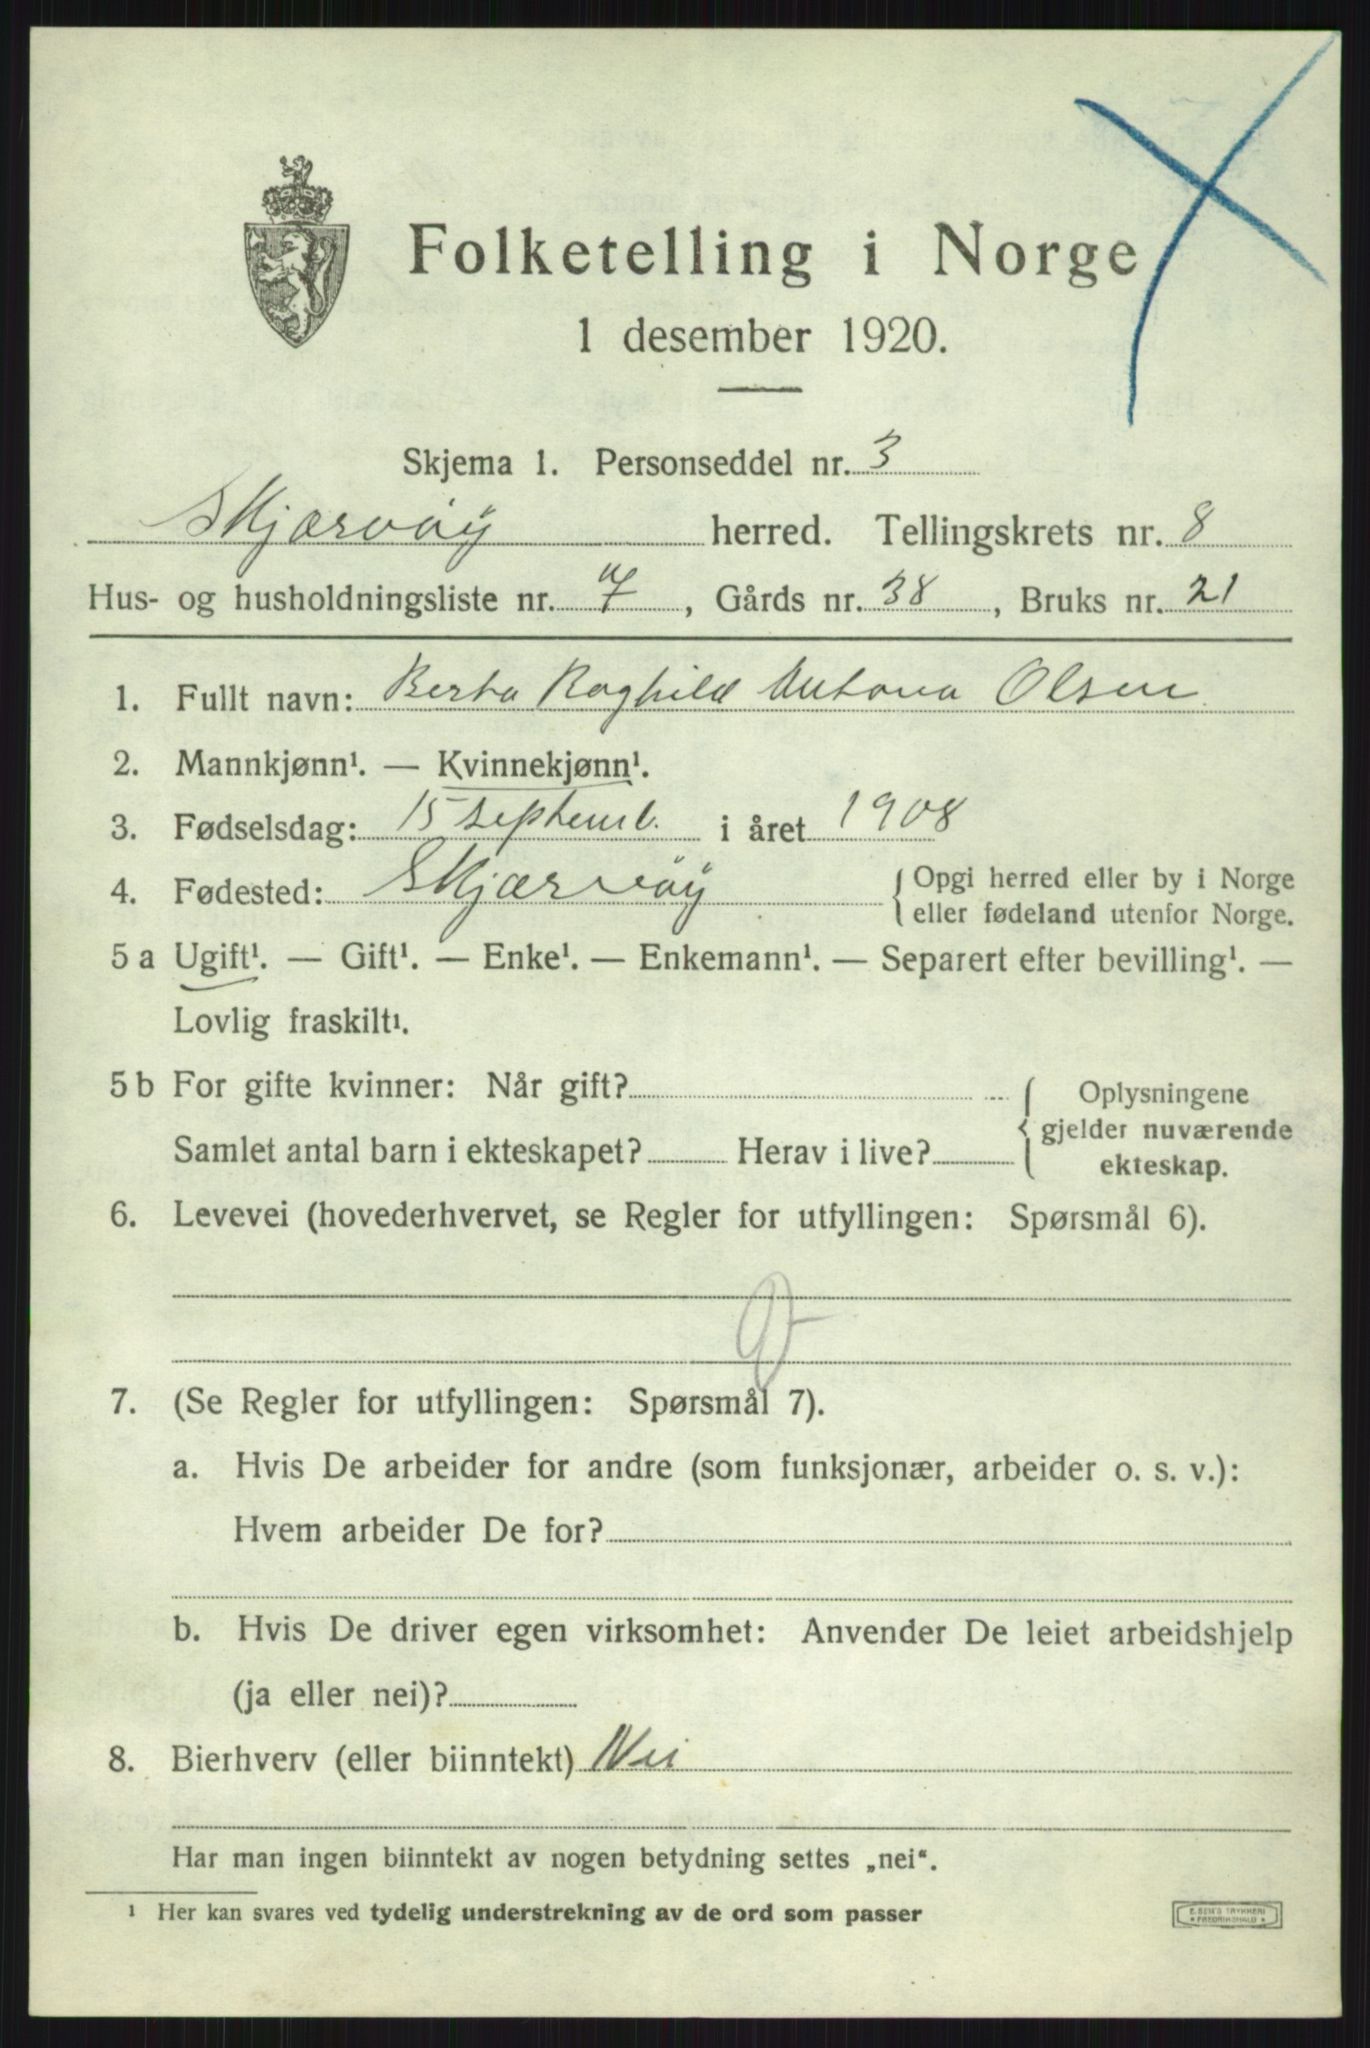 Folketelling i Norge
1 desember 1920.
Skjema 1. Personseddel nr. 3
Skjærvöy herred. Tellingskrets nr. 8
Hus- og husholdningsliste nr. 7, Gårds nr. 38, Bruks nr. 21
1. Fullt navn: Berta Raghild Antona Olsen
2. Mannkjønn¹. — Kvinnekjønn¹.
3. Fødselsdag: 15 septemb. i året 1908
4. Fødested: Skjærvöy { Opgi herred eller by i Norge
eller fødeland utenfor Norge.
5 a Ugift¹. — Gift¹. — Enke¹. — Enkemann¹. — Separert efter bevilling¹. —
Lovlig fraskilt¹.
5 b For gifte kvinner: Når gift? { Oplysningene
gjelder nuværende
Samlet antal barn i ekteskapet? Herav i live?
ekteskap.
6. Levevei (hovederhvervet, se Regler for utfyllingen: Spørsmål 6).
7. (Se Regler for utfyllingen: Spørsmål 7).
a. Hvis De arbeider for andre (som funksjonær, arbeider o. s. v.):
Hvem arbeider De for?
b. Hvis De driver egen virksomhet: Anvender De leiet arbeidshjelp
(ja eller nei)?
8. Bierhverv (eller biinntekt) Nei
Har man ingen biinntekt av nogen betydning settes „nei“.
¹ Her kan svares ved tydelig understrekning av de ord som passer
E. SEM'S TRYKKERI
* FREDRIKSHALD *